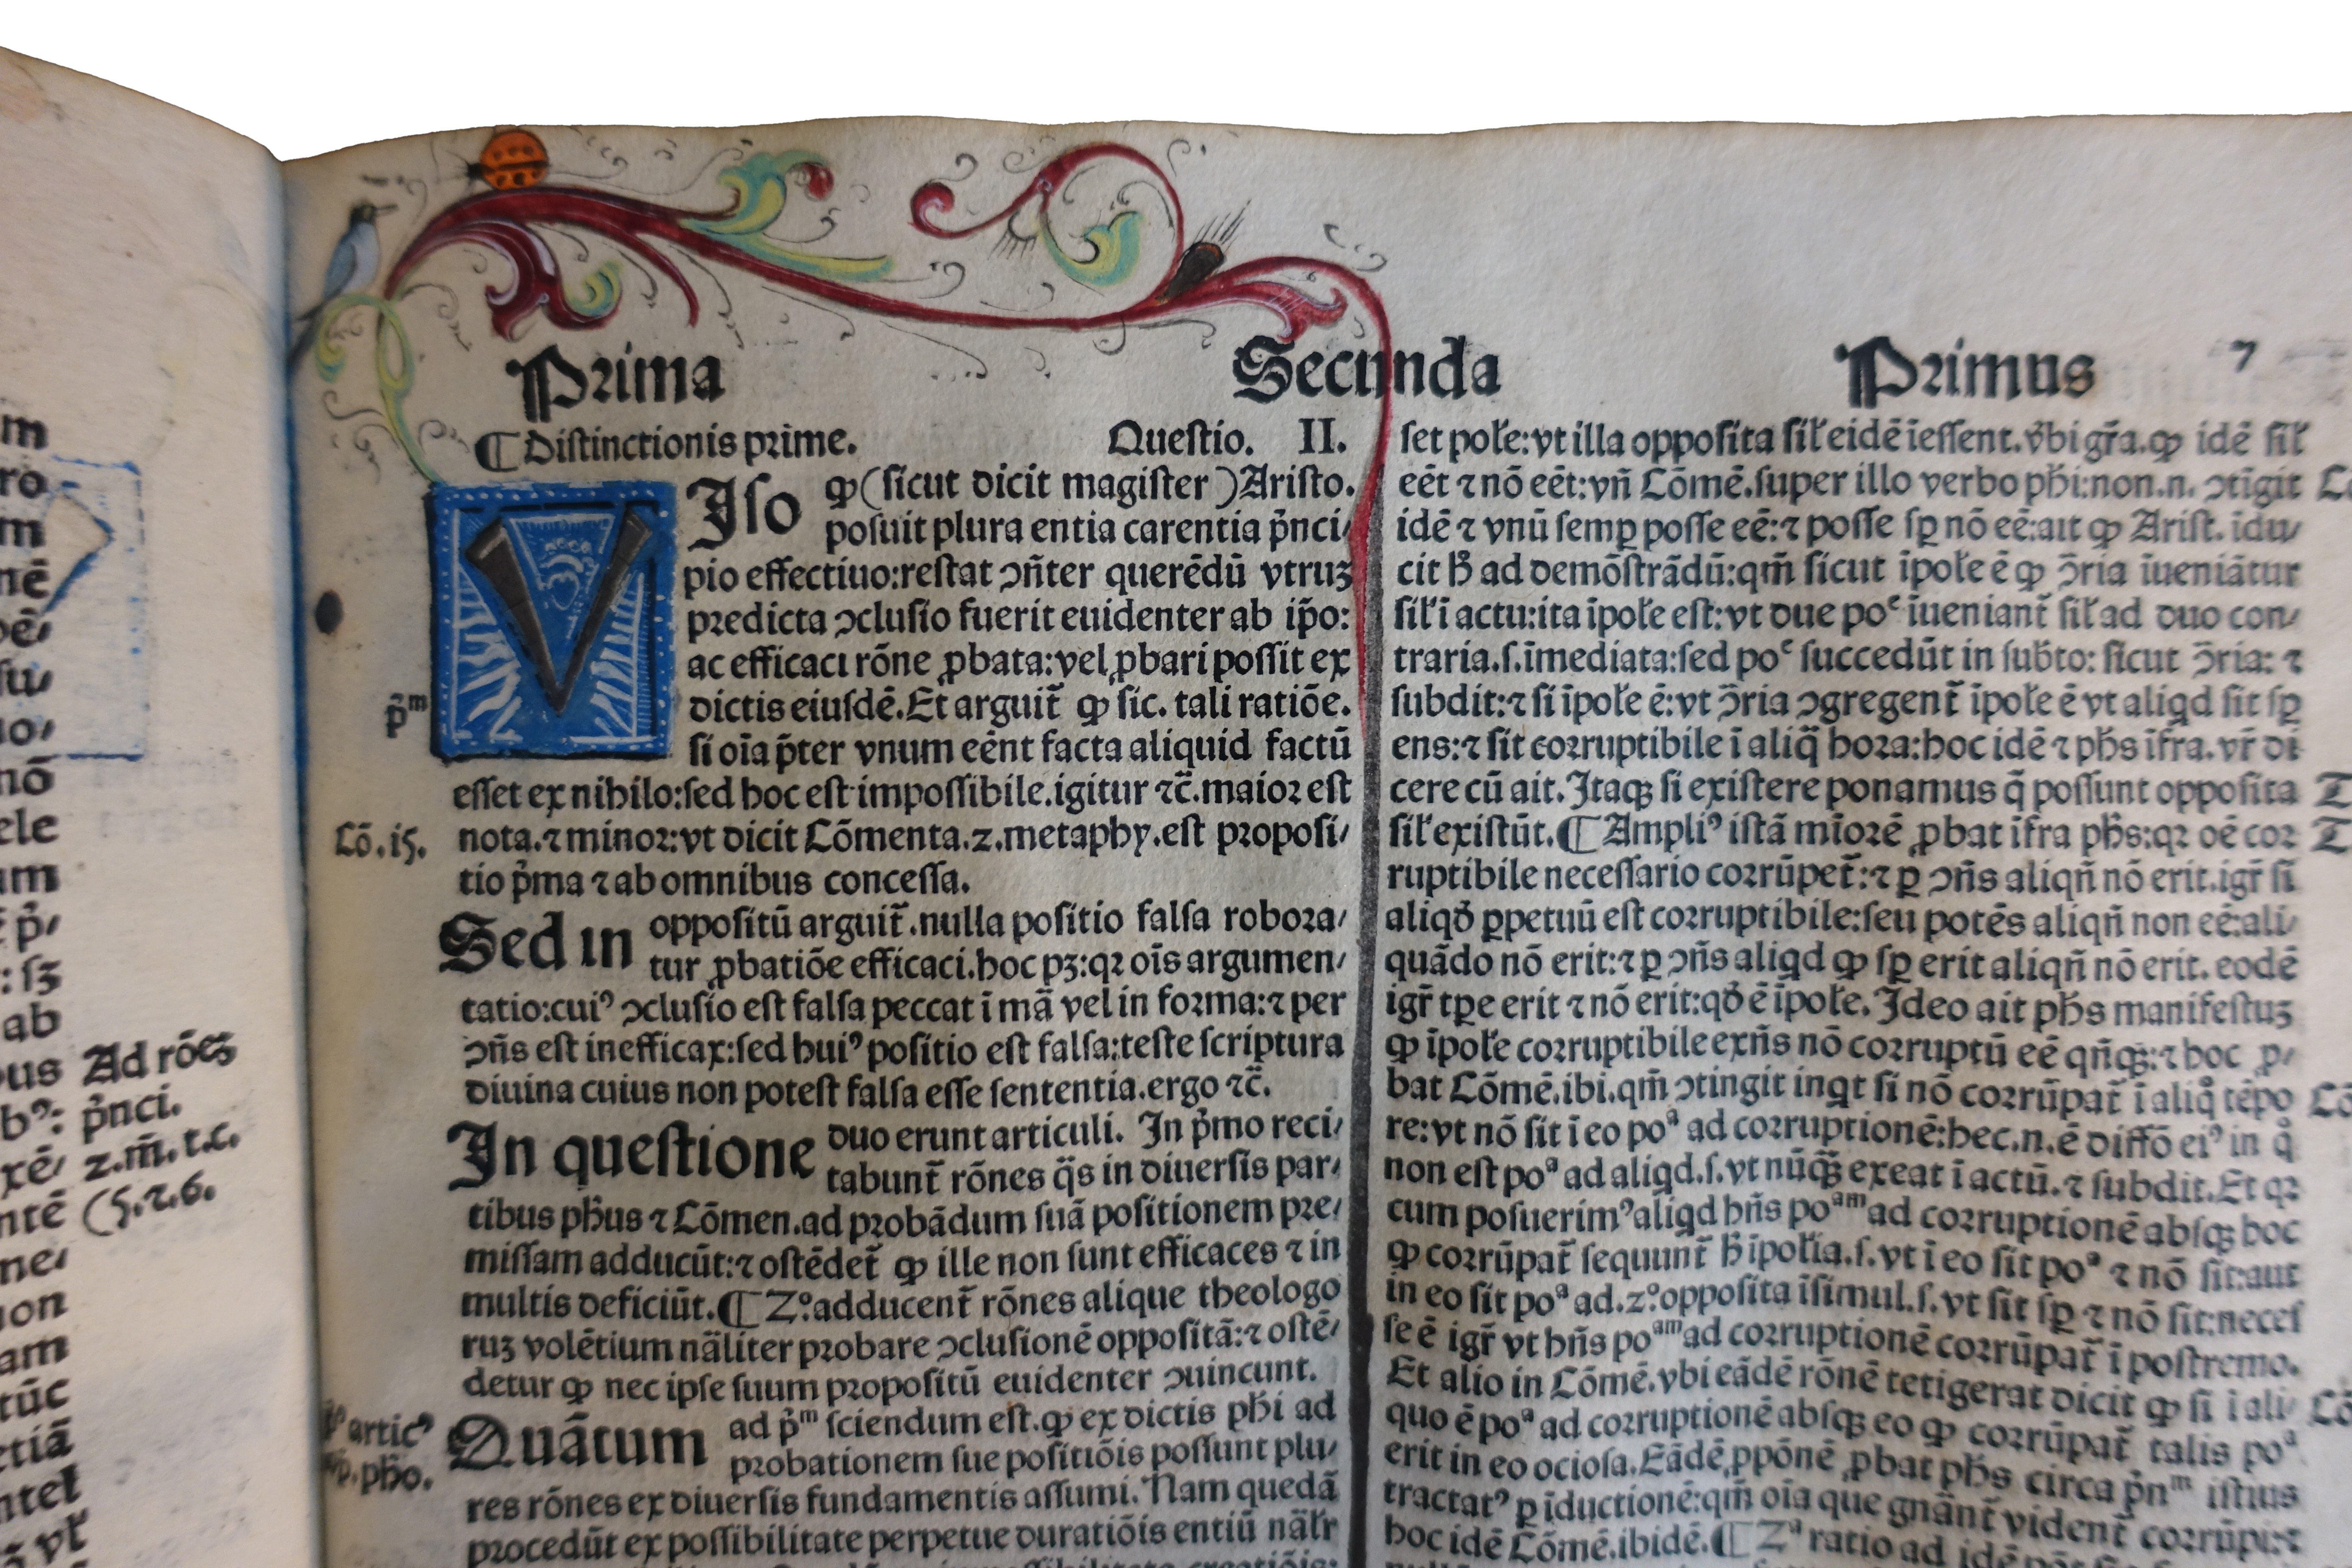 Prima Secunda Primus 7
¶ Distinctionis prime. Questio. II.
VIso ꝙ (sicut dicit magister) Aristo.
posuit plura entia carentia p̄nci⸗
pio effectiuo:restat ↄn̄ter querēdū vtruꝫ
predicta ↄclusio fuerit euidenter ab ip̄o:
ac efficaci rōne ꝓbata:vel ꝓbari possit ex
dictis eiusdē. Et arguit̄ ꝙ sic. tali ratiōe.
p̄ᵐ
si oīa p̄ter vnum eēnt facta aliquid factū
esset ex nihilo:sed hoc est impossibile.igitur ⁊c̄.maior est
Cō.i5.
nota.⁊ minor:vt dicit Cōmenta.2.metaphy.est proposi⸗
tio p̄ma ⁊ ab omnibus concessa.
Sed in oppositū arguit̄.nulla positio falsa robora⸗
tur ꝓbatiōe efficaci.hoc pꝫ:qꝛ oīs argumen⸗
tatio:cuiꝰ ↄclusio est falsa peccat ī mā vel in forma:⁊ per
ↄn̄s est inefficax:sed huiꝰ positio est falsa:teste scriptura
diuina cuius non potest falsa esse sententia.ergo ⁊c̄.
In questione duo erunt articuli. In p̄mo reci⸗
tabunt̄ rōnes q̄s in diuersis par⸗
tibus ph̄us ⁊ Cōmen.ad probādum suā positionem pre⸗
missam adducūt:⁊ ostēdet̄ ꝙ ille non sunt efficaces ⁊ in
multis deficiūt.¶ 2°.adducent̄ rōnes alique theologo
ruꝫ volētium nāliter probare ↄclusionē oppositā:⁊ ostē⸗
detur ꝙ nec ipse suum propositū euidenter ↄuincunt.
articꝰ
ph̄o.
Quātum ad p̄ᵐ sciendum est.ꝙ ex dictis ph̄i ad
probationem sue positiōis possunt plu⸗
res rōnes ex diuersis fundamentis assumi. Nam quedā
procedūt ex possibilitate perpetue duratiōis entiū nāłr
set połe:vt illa opposita sił eidē īessent.v̄bi gr̄a.ꝙ idē sił
eēt ⁊ nō eēt:vn̄ Cōmē.super illo verbo ph̄i:non.n. ↄtīgit
idē ⁊ vnū semꝑ posse eē:⁊ posse sꝑ nō eē:ait ꝙ Arist. īdu⸗
cit h̄ ad demōstrādū:qm̄ sicut īpołe ē ꝙ ↄ̄ria īueniātur
sił ī actu:ita īpołe est:vt due poᵉ īueniant̄ sił ad duo con⸗
traria.s.īmediata:sed poᵉ succedūt in sub̄to: sicut ↄ̄ria: ⁊
subdit:⁊ si īpołe ē:vt ↄ̄ria ↄgregent̄ īpołe ē vt aliqd sit sꝑ
ens:⁊ sit corruptibile ī aliq̄ hora:hoc idē ⁊ ph̄s īfra.vr̄ di
cere cū ait. Itaqꝫ si existere ponamus q̄ possunt opposita
sił existūt.¶ Ampliꝰ istā mīorē ꝓbat īfra ph̄s:qꝛ oē cor
ruptibile necessario corrūpet̄:⁊ ꝑ ↄn̄s aliqn̄ nō erit.igr̄ si
aliqđ ꝑpetuū est corruptibile:seu potēs aliqn̄ non eē:ali⸗
quādo nō erit:⁊ ꝑ ↄn̄s aliqd ꝙ sꝑ erit aliqn̄ nō erit. eodē
igr̄ tꝑe erit ⁊ nō erit:qđ ē īpołe. Ideo ait ph̄s manifestuꝫ
ꝙ īpołe corruptibile exn̄s nō corruptū eē qn̄qꝫ:⁊ hoc ꝓ⸗
bat Cōmē.ibi.qm̄ ↄtingit inqt si nō corrūpat̄ ī aliq̊ tēpo
re:vt nō sit ī eo poᵃ ad corruptionē:hec.n.ē diffō eiꝰ in q̊
non est poᵃ ad aliqd.s.vt nūqꝫ exeat ī actū.⁊ subdit. Et qꝛ
cum posuerimꝰ aliqd hn̄s poᵃᵐ ad corruptionē absqꝫ hoc
ꝙ corrūpat̄ sequunt̄ h̄ īpołia.s.vt ī eo sit poᵃ ⁊ nō sit:aut
in eo sit poᵃ ad.2°.opposita īsimul.s.vt sit sꝑ ⁊ nō sit:neces
se ē igr̄ vt hn̄s poᵃᵐ ad corruptionē corrūpat̄ ī postremo.
Et alio in Cōmē.vbi eādē rōnē tetigerat dicit ꝙ si ī ali⸗
quo ē poᵃ ad corruptionē absqꝫ eo ꝙ corrūpat̄ talis poᵃ
erit in eo ociosa. Eādē ꝓpōnē ꝓbat ph̄s circa p̄nᵐ istius
tractatꝰ ꝑ īductionē:qm̄ oīa que gnānt̄ vident̄ corrūpi:⁊
hoc idē Cōmē.ibidē.¶ 2ᵃ ratio ad idē
Ad rōeꝫ
p̄nci.
2.m̄.t.c.
(5.⁊.6.